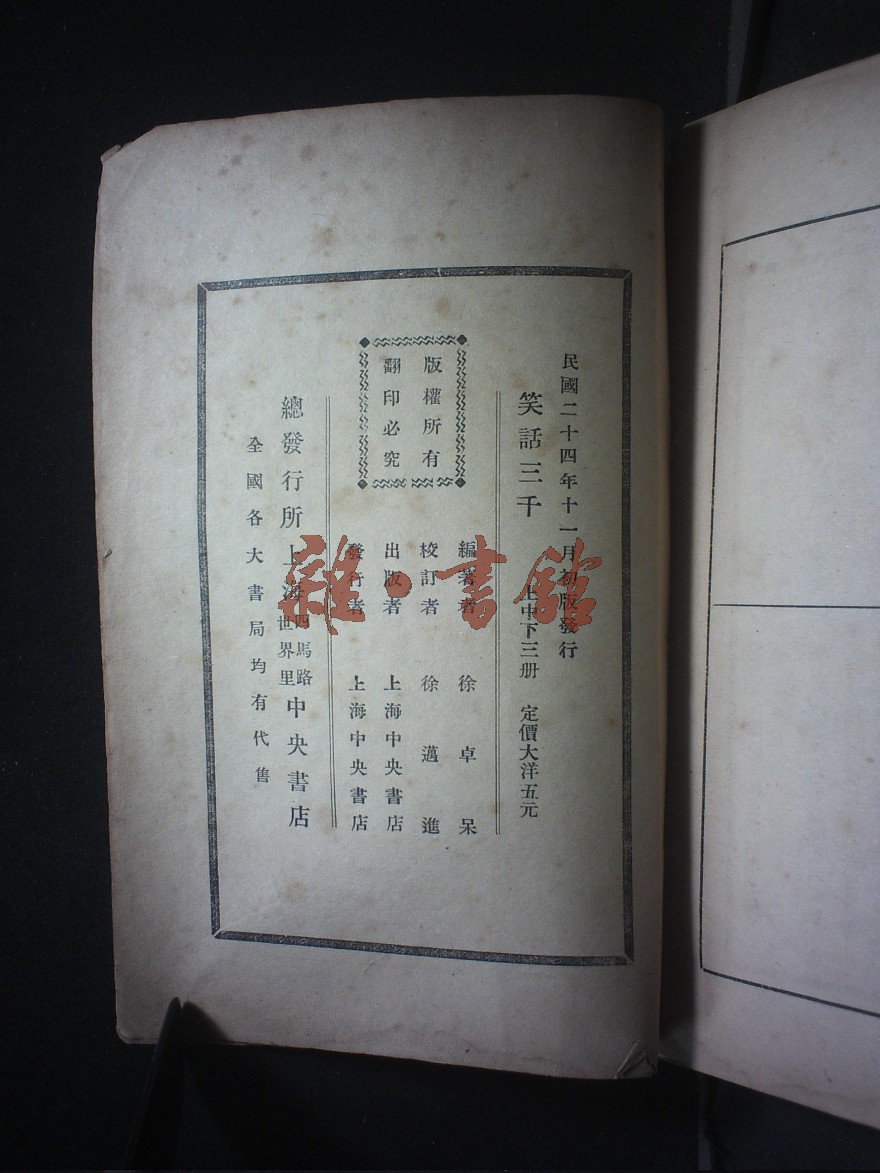 民國二十四年十一月初版發行
笑話三千 上中下三册 定價大洋五元
編著者 徐卓呆
校訂者 徐邁進
出版者 上海中央書店
發行者 上海中央書店
版權所有
翻印必究
總發行所 上海四馬路世界里 中央書店
全國各大書局均有代售
雜·書館